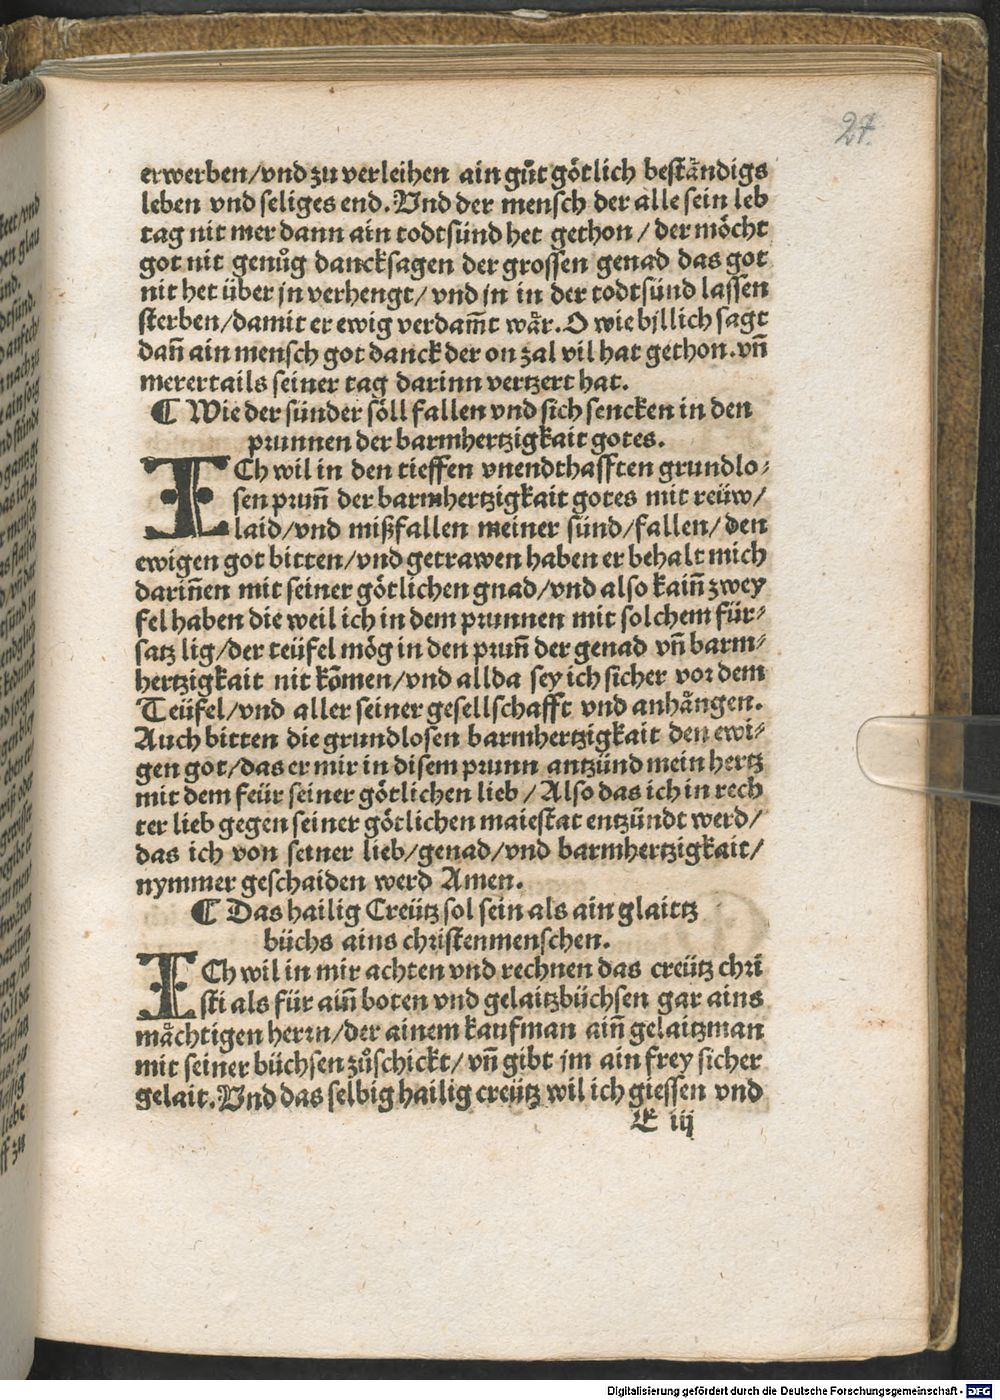 27.
erwerben/vnd zu verleihen ain gůt götlich bestăndigs
leben vnd seliges end. Vnd der mensch der alle sein leb
tag nit mer dann ain todtsünd het gethon / der möcht
got nit genůg dancksagen der grossen genad das got
nit het über jn verhengt/ vnd jn in der todtsünd lassen
sterben/damit er ewig verdam̄t wăr. O wie billich sagt
dan̄ ain mensch got danck der on zal vil hat gethon. vn̄
merertails seiner tag darinn vertzert hat.
¶ Wie der sünder söll fallen vnd sich sencken in den
prunnen der barmhertzigkait gotes.
ICh wil in den tieffen vnendthafften grundlo⸗
sen prun̄ der barmhertzigkait gotes mit reüw/
laid/vnd mißfallen meiner sünd/fallen/den
ewigen got bitten/vnd getrawen haben er behalt mich
darin̄en mit seiner götlichen gnad/vnd also kain̄ zwey
fel haben die weil ich in dem prunnen mit solchem für⸗
satz lig/der teüfel mög in den prun̄ der genad vn̄ barm⸗
hertzigkait nit kōmen/vnd allda sey ich sicher vor dem
Teüfel/vnd aller seiner gesellschafft vnd anhăngen.
Auch bitten die grundlosen barmhertzigkait den ewi⸗
gen got/das er mir in disem prunn antzünd mein hertz
mit dem feür seiner götlichen lieb / Also das ich in rech
ter lieb gegen seiner götlichen maiestat entzündt werd/
das ich von seiner lieb/genad/vnd barmhertzigkait/
nymmer geschaiden werd Amen.
¶ Das hailig Creütz sol sein als ain glaittz
büchs ains christenmenschen.
ICh wil in mir achten vnd rechnen das creütz chri
sti als für ain̄ boten vnd gelaitzbüchsen gar ains
măchtigen herrn/der ainem kaufman ain̄ gelaitzman
mit seiner büchsen zůschickt/ vn̄ gibt jm ain frey sicher
gelait. Vnd das selbig hailig creütz wil ich giessen vnd
E iij
Digitalisierung gefördert durch die Deutsche Forschungsgemeinschaft - DFG